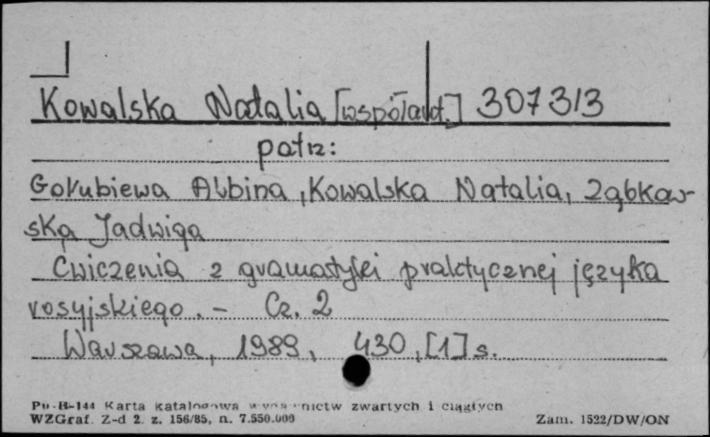 Kowalska Natalia [współaut.] 307313
patrz:
Gołubiewa Albina, Kowalska Natalia, Ząbkow-
ska Jadwiga
Ćwiczenia z gramatyki praktycznej języka
rosyjskiego. - Cz. 2
Warszawa, 1989, 430, [1] s.
Pu-B-144 Karta katalogowa wydawnictw zwartych i ciągłych
WZGraf. Z-d 2. z. 156/85, n. 7.550.000
Zam. 1522/DW/ON